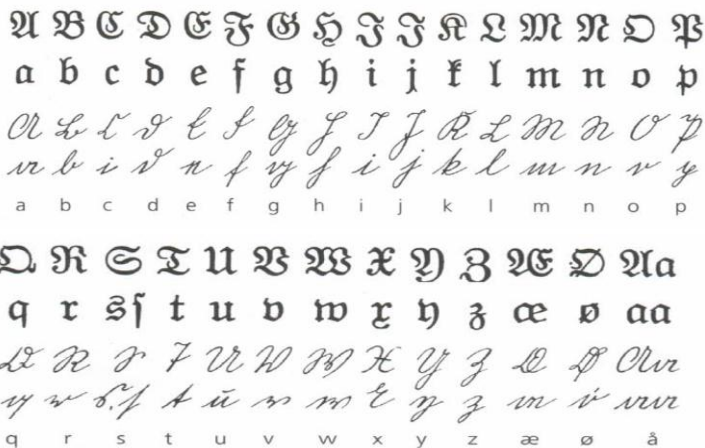 A B C D E F G H I J K L M N O P
a b c d e f g h i j k l m n o p
A B C D E F G H I J K L M N O P
a b c d e f g h i j k l m n o p
a b c d e f g h i j k l m n o p
Q R S T U V W X Y Z Æ Ø Aa
q r s ſ t u v w x y z æ ø aa
Q R S T U V W X Y Z Æ Ø Aa
q r s ſ t u v w x y z æ ø aa
q r s t u v w x y z æ ø å